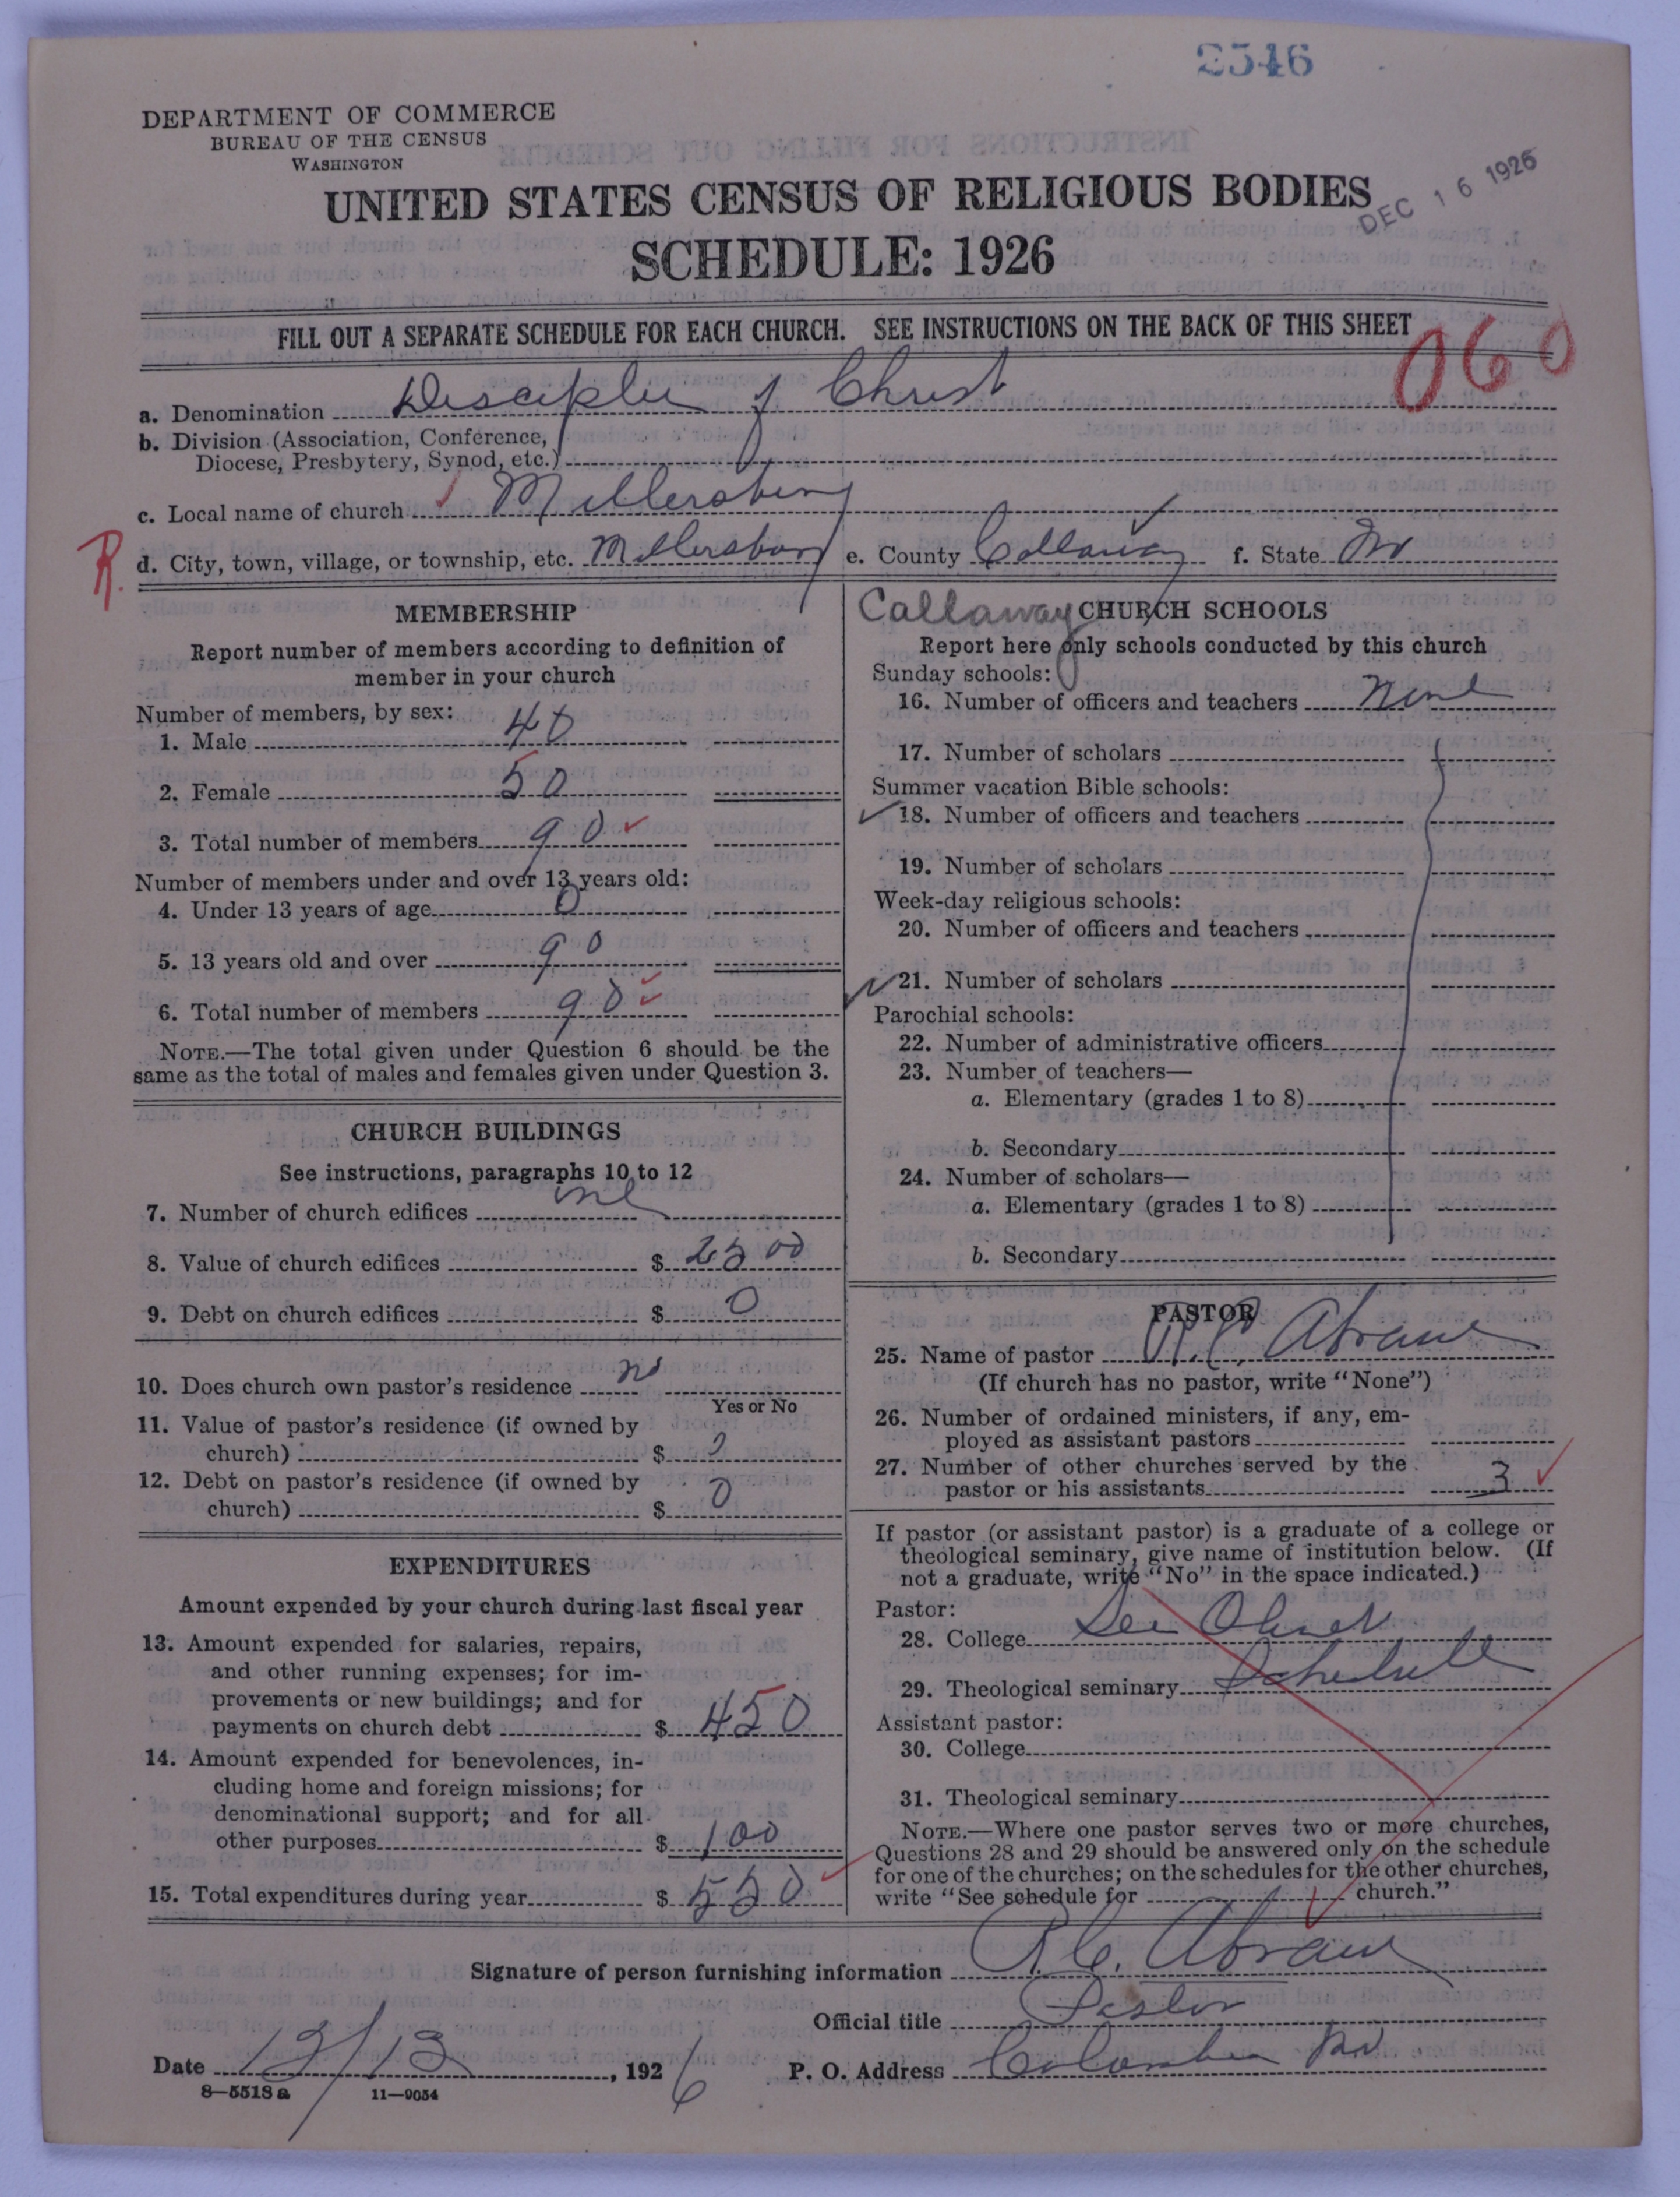 2546
DEPARTMENT OF COMMERCE
BUREAU OF THE CENSUS
WASHINGTON
UNITED STATES CENSUS OF RELIGIOUS BODIES
SCHEDULE: 1926
DEC 16 1926
FILL OUT A SEPARATE SCHEDULE FOR EACH CHURCH. SEE INSTRUCTIONS ON THE BACK OF THIS SHEET
060
a. Denomination Disciples of Christ
b. Division (Association, Conference,
Diocese, Presbytery, Synod, etc.)
c. Local name of church Millersburg
R. d. City, town, village, or township, etc. Millersburg e. County Callaway f. State Mo
MEMBERSHIP
Report number of members according to definition of
member in your church
Number of members, by sex:
1. Male 40
2. Female 50
3. Total number of members 90
Number of members under and over 13 years old:
4. Under 13 years of age 0
5. 13 years old and over 90
6. Total number of members 90
NOTE.—The total given under Question 6 should be the
same as the total of males and females given under Question 3.
CHURCH BUILDINGS
See instructions, paragraphs 10 to 12
7. Number of church edifices one
8. Value of church edifices $ 2500
9. Debt on church edifices $ 0
10. Does church own pastor's residence no
Yes or No
11. Value of pastor's residence (if owned by
church) $ 0
12. Debt on pastor's residence (if owned by
church) $ 0
EXPENDITURES
Amount expended by your church during last fiscal year
13. Amount expended for salaries, repairs,
and other running expenses; for im-
provements or new buildings; and for
payments on church debt $ 450
14. Amount expended for benevolences, in-
cluding home and foreign missions; for
denominational support; and for all
other purposes $ 100
15. Total expenditures during year $ 550
Callaway CHURCH SCHOOLS
Report here only schools conducted by this church
Sunday schools:
16. Number of officers and teachers none
17. Number of scholars
Summer vacation Bible schools:
18. Number of officers and teachers
19. Number of scholars
Week-day religious schools:
20. Number of officers and teachers
21. Number of scholars
Parochial schools:
22. Number of administrative officers
23. Number of teachers—
a. Elementary (grades 1 to 8)
b. Secondary
24. Number of scholars—
a. Elementary (grades 1 to 8)
b. Secondary
PASTOR
25. Name of pastor R. C. Abram
(If church has no pastor, write "None")
26. Number of ordained ministers, if any, em-
ployed as assistant pastors
27. Number of other churches served by the
pastor or his assistants 3
If pastor (or assistant pastor) is a graduate of a college or
theological seminary, give name of institution below. (If
not a graduate, write "No" in the space indicated.)
Pastor:
28. College See Olivet
29. Theological seminary Schedule
Assistant pastor:
30. College
31. Theological seminary
NOTE.—Where one pastor serves two or more churches,
Questions 28 and 29 should be answered only on the schedule
for one of the churches; on the schedules for the other churches,
write "See schedule for church."
Signature of person furnishing information R. C. Abram
Official title Pastor
Date 12/13, 1926 P. O. Address Columbia Mo
8—5518 a 11—9054